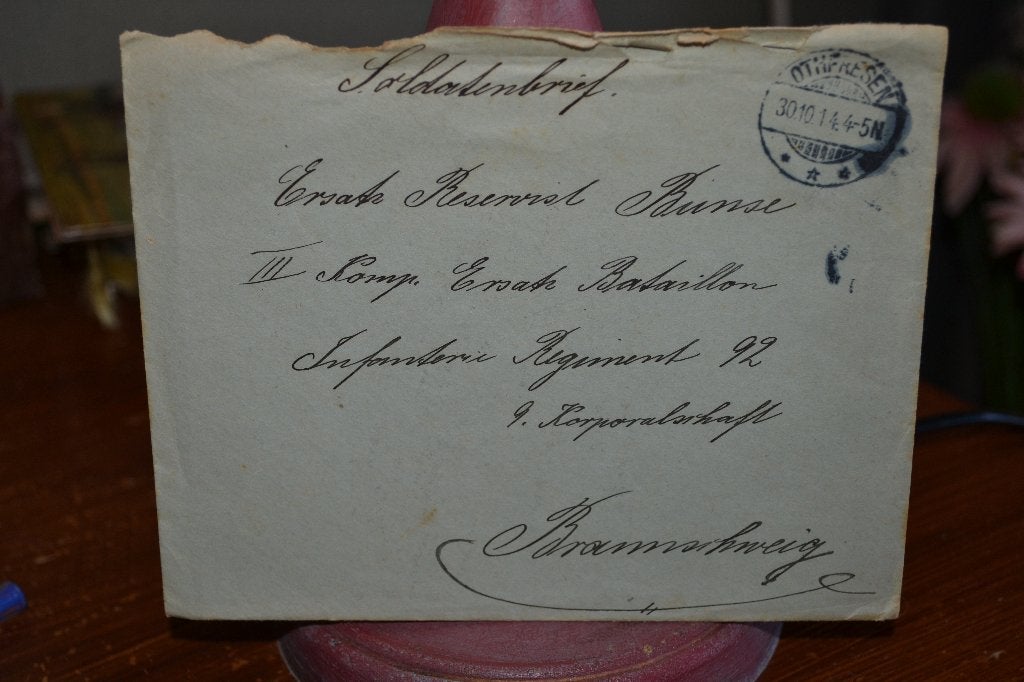 Soldatenbrief.
OTHFRESEN
30.10.14.4-5N.
Ersatz Reservist Bunse
III Komp. Ersatz Bataillon
Infanterie Regiment 92
9. Korporalschaft
Braunschweig